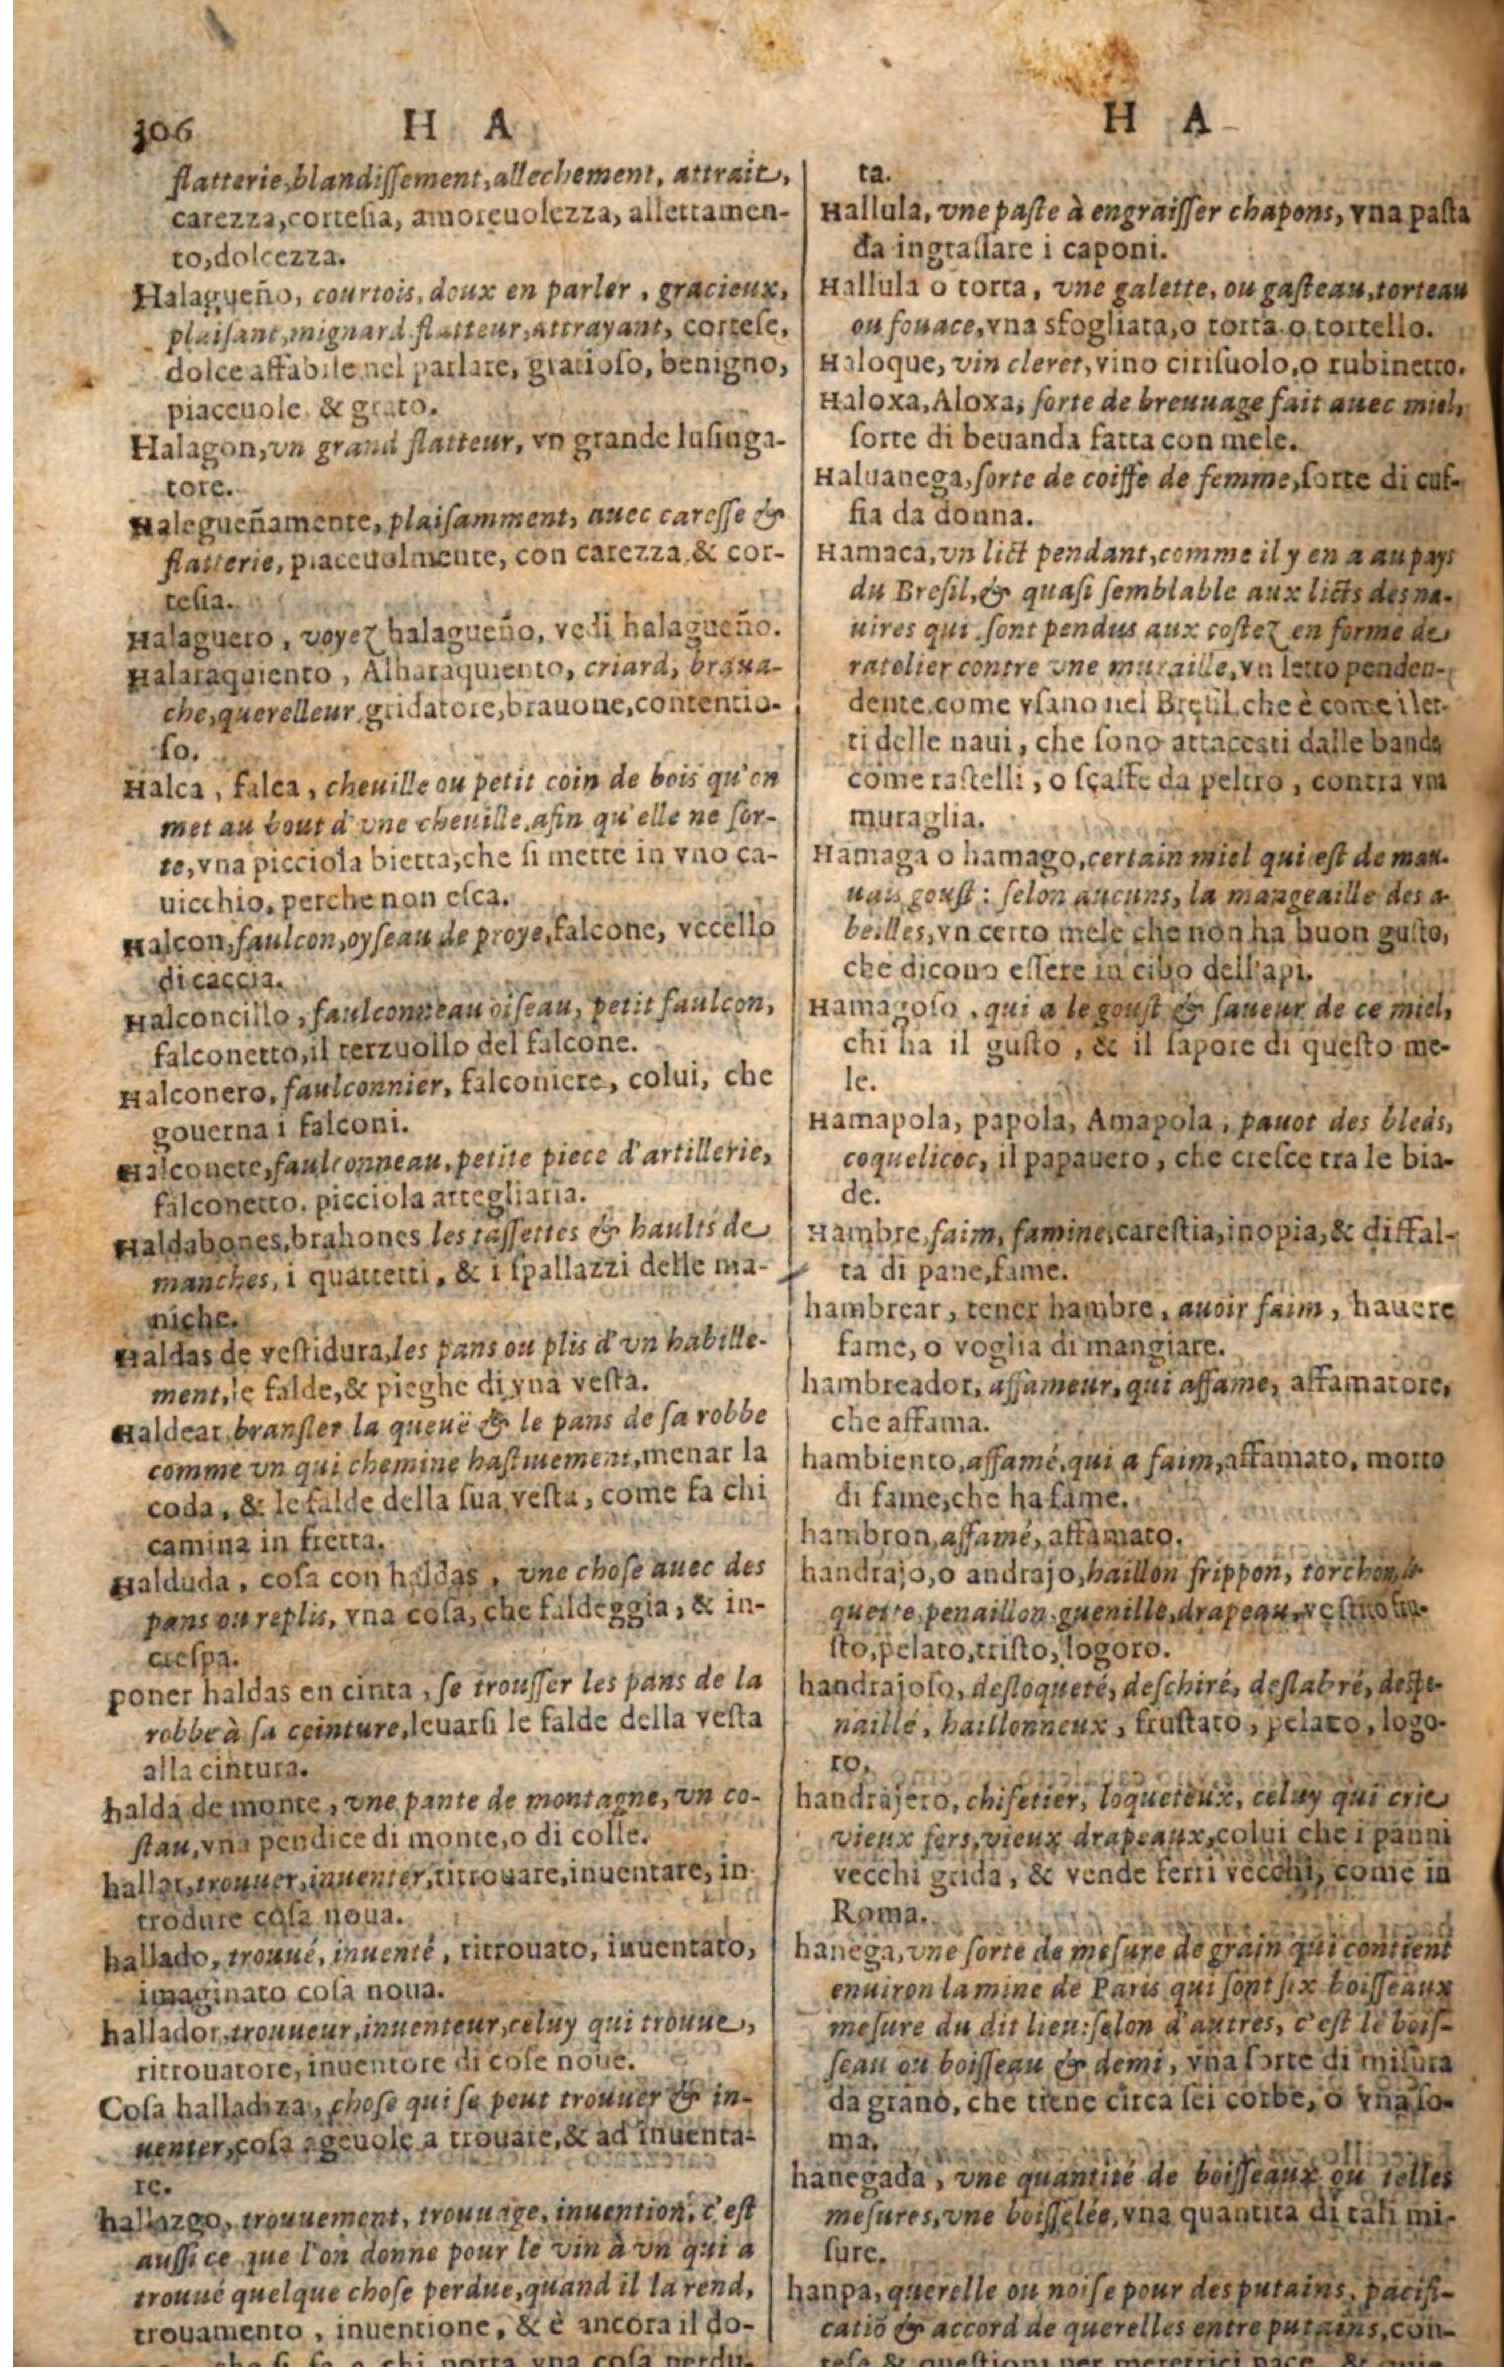 306 H A
flatterie, blandiſſement, allechement, attrait,
carezza, corteſia, amoreuolezza, allettamen-
to, dolcezza.
Halagueño, courtois, doux en parler, gracieux,
plaiſant, mignard flatteur, attrayant, corteſe,
dolce affabile nel parlare, gratioſo, benigno,
piaceuole & grato.
Halagon, vn grand flatteur, vn grande luſinga-
tore.
Halegueñamente, plaiſamment, auec careſſe &
flatterie, piaceuolmente, con carezza, & cor-
teſia.
Halaguero, voyez halagueño, vedi halagueño.
Halaraquiento, Alharaquiento, criard, braua-
che, querelleur, gridatore, brauone, contentio-
ſo.
Halca, falca, cheuille ou petit coin de bois qu'on
met au bout d'vne cheuille, afin qu'elle ne ſor-
te, vna picciola bietta, che ſi mette in vno ca-
uicchio, perche non eſca.
Halcon, faulcon, oyſeau de proye, falcone, vccello
di caccia.
Halconcillo, faulconneau oiſeau, petit faulcon,
falconetto, il terzuollo del falcone.
Halconero, faulconnier, falconiere, colui, che
gouerna i falconi.
Halconete, faulconneau, petite piece d'artillerie,
falconetto, picciola artegliaria.
Haldabones, brahones les taſſettes & haults de
manches, i quartetti, & i ſpallazzi delle ma-
niche.
Haldas de veſtidura, les pans ou plis d'vn habille-
ment, le falde, & pieghe di vna veſta.
Haldear branſler la queuë & le pans de ſa robbe
comme vn qui chemine haſtiuement, menar la
coda, & le falde della ſua veſta, come fa chi
camina in fretta.
Halduda, coſa con haldas, vne choſe auec des
pans ou replis, vna coſa, che faldeggia, & in-
creſpa.
poner haldas en cinta, ſe trouſſer les pans de la
robbe à ſa ceinture, leuarſi le falde della veſta
alla cintura.
halda de monte, vne pante de montagne, vn co-
ſtau, vna pendice di monte, o di colle.
hallar, trouuer, inuenter, ritrouare, inuentare, in
trodure coſa noua.
hallado, trouué, inuenté, ritrouato, inuentato,
imaginato coſa noua.
hallador, trouueur, inuenteur, celuy qui trouue,
ritrouatore, inuentore di coſe noue.
Coſa halladiza, choſe qui ſe peut trouuer & in-
uenter, coſa ageuole a trouare, & ad inuenta-
re.
hallazgo, trouuement, trouuage, inuention, c'eſt
auſſi ce que l'on donne pour le vin à vn qui a
trouué quelque choſe perdue, quand il la rend,
trouamento, inuentione, & è ancora il do-
che ſi fa a chi porta vna coſa perdu-
H A
ta.
Hallula, vne paſte à engraiſſer chapons, vna paſta
da ingraſſare i caponi.
Hallula o torta, vne galette, ou gaſteau, torteau
ou fouace, vna sfogliata, o torta o tortello.
Haloque, vin cleret, vino ciriſuolo, o rubinetto.
Haloxa, Aloxa, ſorte de breuuage fait auec miel,
ſorte di beuanda fatta con mele.
Haluanega, ſorte de coiffe de femme, ſorte di cuf-
fia da donna.
Hamaca, vn lict pendant, comme il y en a au pays
du Breſil, & quaſi ſemblable aux licts des na-
uires qui ſont pendus aux coſtez en forme de
ratelier contre vne muraille, vn letto penden-
dente, come vſano nel Breſil, che è come i let-
ti delle naui, che ſono attaccati dalle bande
come raſtelli, o ſcaffe da peltro, contra vna
muraglia.
Hamaga o hamago, certain miel qui eſt de mau-
uais gouſt: ſelon aucuns, la mangeaille des a-
beilles, vn certo mele che non ha buon guſto,
che dicono eſſere in cibo dell'api.
Hamagoſo, qui a le gouſt & ſaueur de ce miel,
chi ha il guſto, & il ſapore di queſto me-
le.
Hamapola, papola, Amapola, pauot des bleds,
coquelicoc, il papauero, che creſce tra le bia-
de.
Hambre, faim, famine, careſtia, inopia, & diffal-
ta di pane, fame.
hambrear, tener hambre, auoir faim, hauere
fame, o voglia di mangiare.
hambreador, affameur, qui affame, affamatore,
che affama.
hambiento, affamé, qui a faim, affamato, morto
di fame, che ha fame.
hambron, affamé, affamato.
handrajo, o andrajo, haillon frippon, torchon, lo-
quette, penaillon, guenille, drapeau, veſtito fru-
ſto, pelato, triſto, logoro.
handrajoſo, desloqueté, deſchiré, deslabré, deſpe-
naillé, haillonneux, fruſtato, pelato, logo-
ro.
handrajero, chifetier, loqueteux, celuy qui crie
vieux fers, vieux drapeaux, colui che i panni
vecchi grida, & vende ferri vecchi, come in
Roma.
hanega, vne ſorte de meſure de grain qui contient
enuiron la mine de Paris qui ſont ſix boiſſeaux
meſure du dit lieu: ſelon d'autres, c'eſt le boiſ-
ſeau ou boiſſeau & demi, vna ſorte di miſura
da grano, che tiene circa ſei corbe, o vna ſo-
ma.
hanegada, vne quantité de boiſſeaux ou telles
meſures, vne boiſſelée, vna quantita di tali mi-
ſure.
hanpa, querelle ou noiſe pour des putains, pacifi-
catiõ & accord de querelles entre putains, con-
teſa & queſtioni per meretrici pace, &